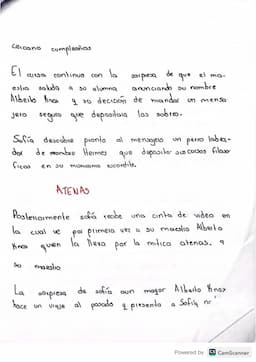 cercano cumpleaños
El curso continuo con la sorpresa de que el ma-
estro saluda a su alumna anunciando su nombre
Alberto Knox y su decisión de mandar un mensa
jero seguro que depositara los sobres.
Sofía descubre pronto al mensajero un perro labra-
dor de nombre Hermes que deposito sus cartas filoso
ficas en su mismisimo escondite.
ATENAS
Posteriormente sofía recibe una cinta de video en
la cual ve por primera vez a su maestro Alberto
Knox quien la lleva por la mitica atenas. a
su maestro
La sorpresa de sofía aun mayor Alberto Knox
hace un viaje al pasado y presenta a Sofía
Powered by CS CamScanner